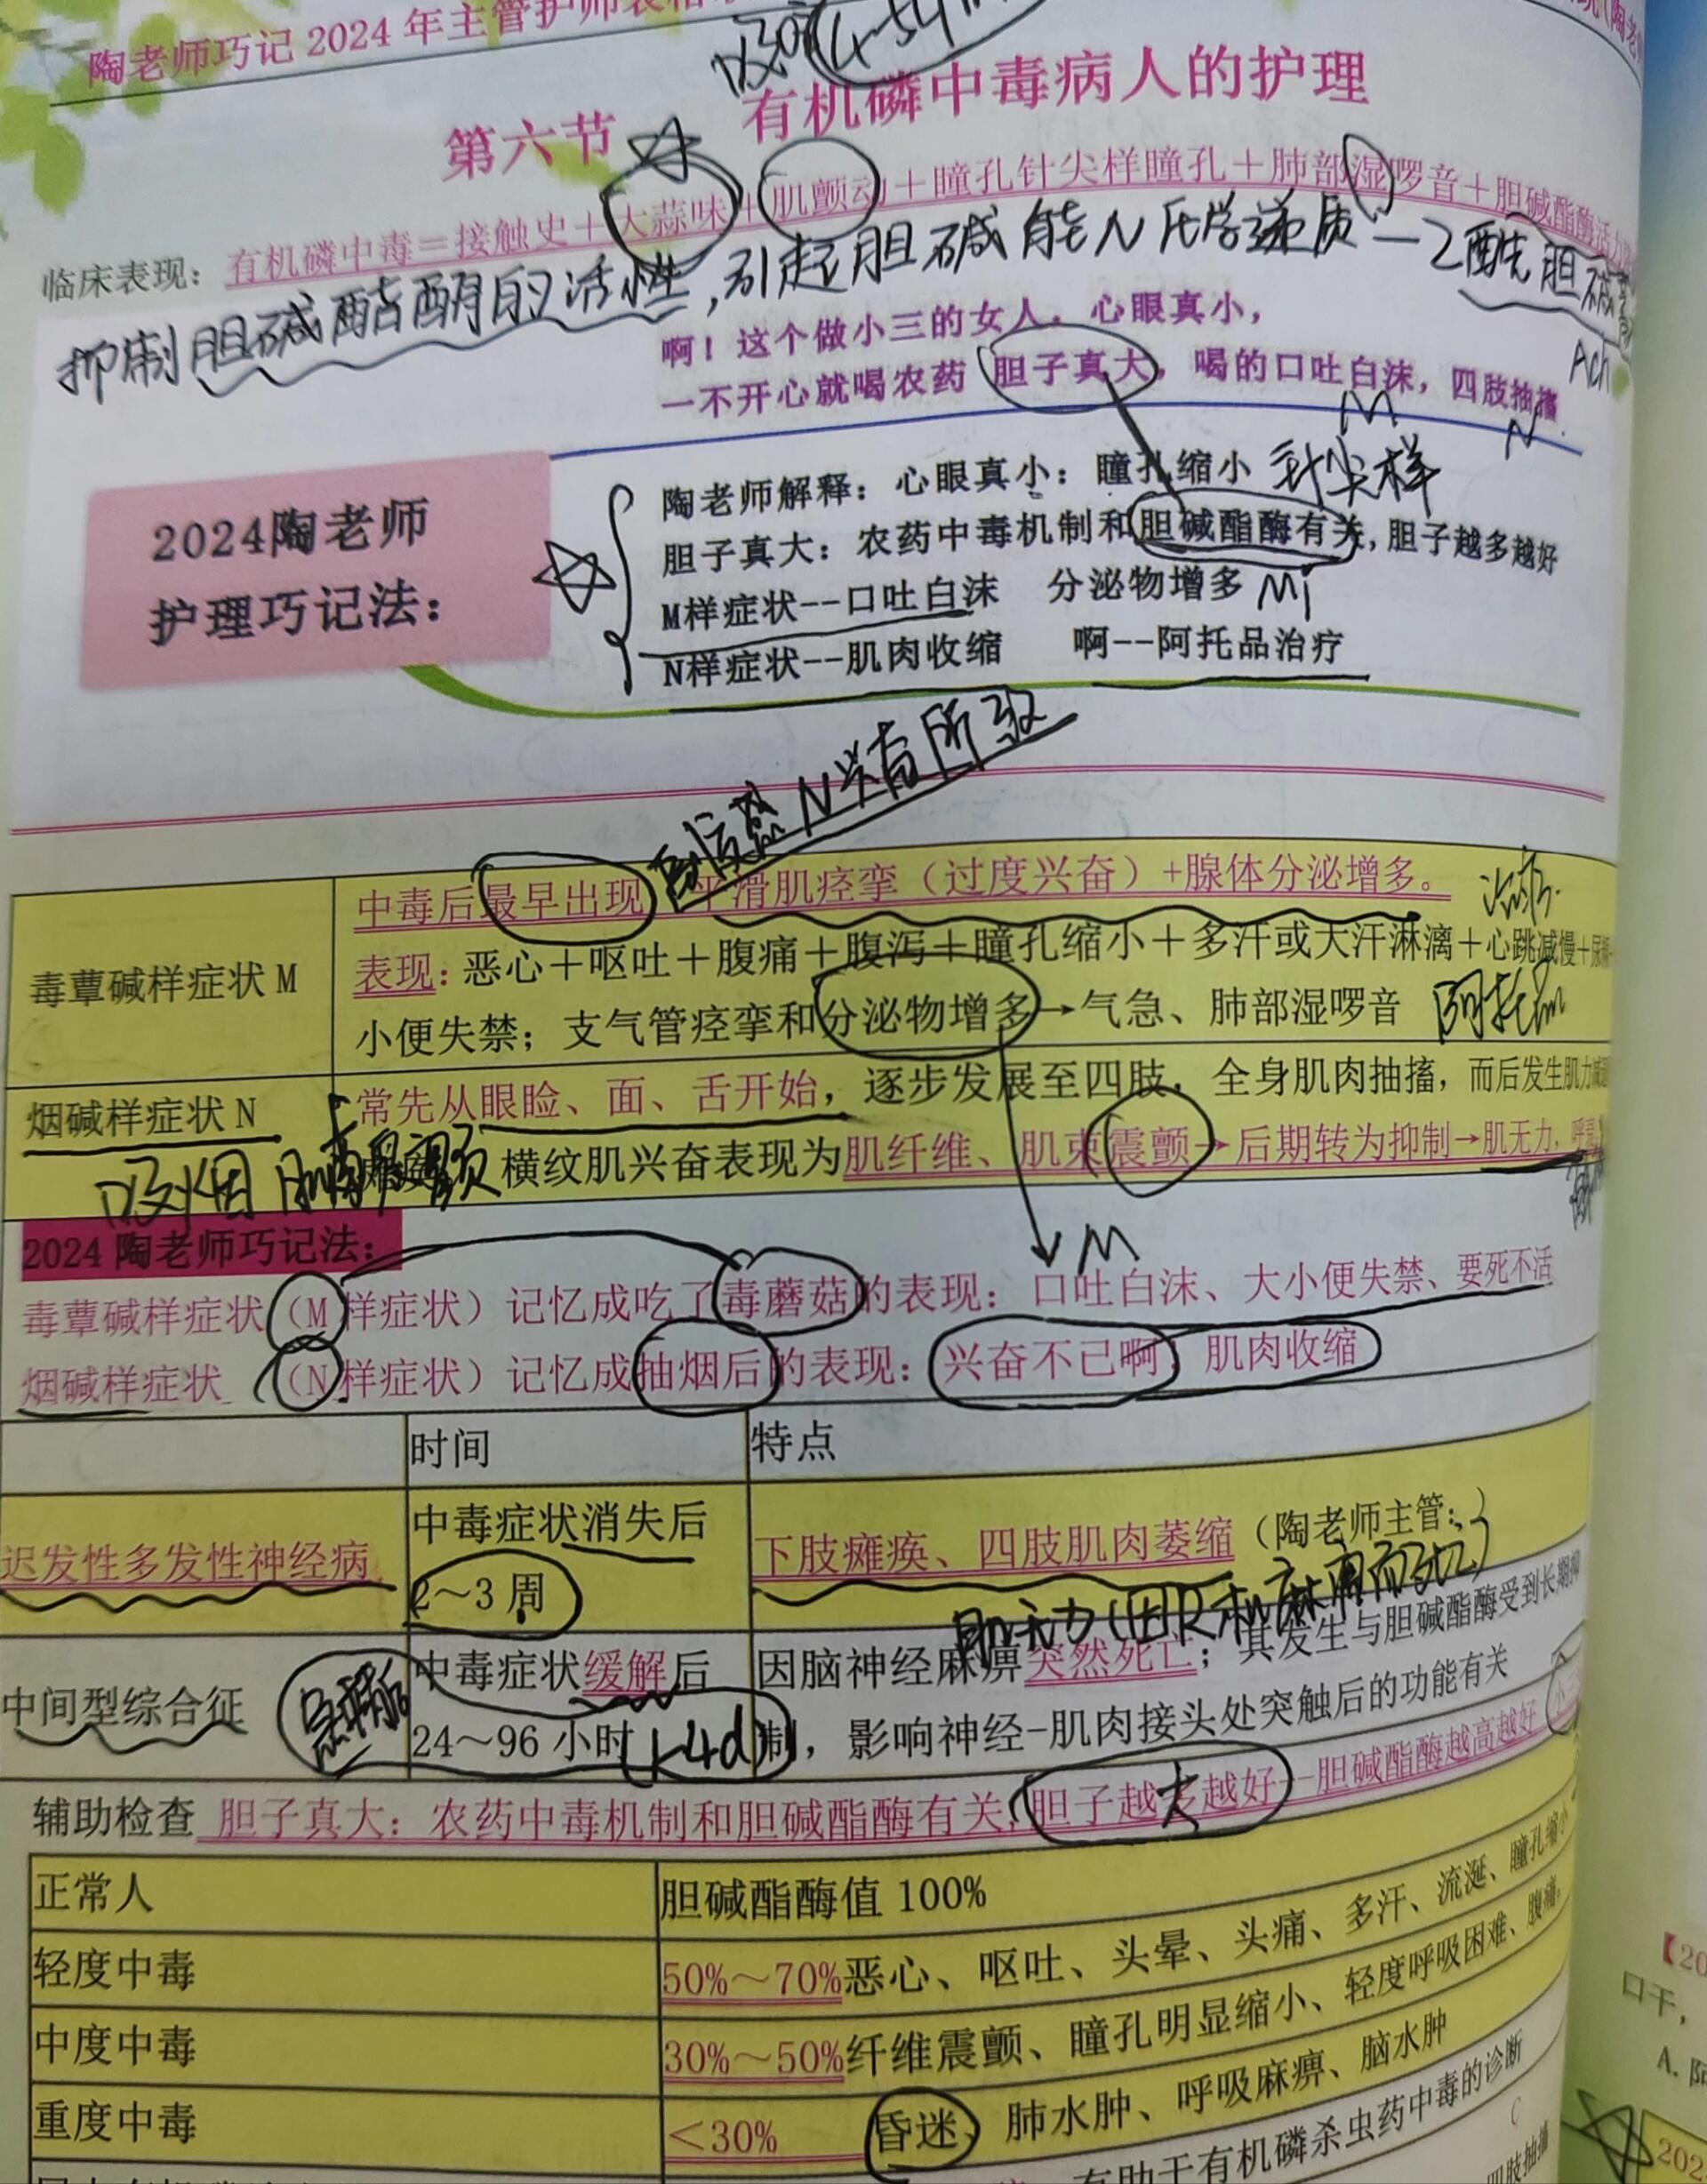 陶老师巧记 2024 年主管护师表格
第六节 有机磷中毒病人的护理
临床表现：有机磷中毒＝接触史＋大蒜味＋肌颤动＋瞳孔针尖样瞳孔＋肺部湿啰音＋胆碱酯酶活力
抑制胆碱酯酶的活性，引起胆碱能N化学递质—乙酰胆碱
Ach
啊！这个做小三的女人，心眼真小，
一不开心就喝农药 胆子真大，喝的口吐白沫，四肢抽搐
M
N
2024陶老师
护理巧记法：
陶老师解释：心眼真小：瞳孔缩小 针尖样
胆子真大：农药中毒机制和胆碱酯酶有关，胆子越多越好
M样症状--口吐白沫 分泌物增多 M
N样症状--肌肉收缩 啊--阿托品治疗
N兴奋所致
毒蕈碱样症状 M
中毒后最早出现 平滑肌痉挛（过度兴奋）+腺体分泌增多。
表现：恶心＋呕吐＋腹痛＋腹泻＋瞳孔缩小＋多汗或大汗淋漓＋心跳减慢＋尿频
小便失禁；支气管痉挛和分泌物增多→气急、肺部湿啰音 阿托品
烟碱样症状 N
常先从眼睑、面、舌开始，逐步发展至四肢，全身肌肉抽搐，而后发生肌力减退
吸烟 横纹肌兴奋表现为肌纤维、肌束震颤→后期转为抑制→肌无力，呼
2024 陶老师巧记法：
M
毒蕈碱样症状（M 样症状）记忆成吃了毒蘑菇的表现：口吐白沫、大小便失禁、要死不活
烟碱样症状 （N 样症状）记忆成抽烟后的表现：兴奋不已啊 肌肉收缩
时间 特点
迟发性多发性神经病
中毒症状消失后
2～3 周
下肢瘫痪、四肢肌肉萎缩（陶老师主管：
肌无力（因R机麻痹而死）
中间型综合征
中毒症状缓解后
24～96 小时（1-4d）
因脑神经麻痹突然死亡；其发生与胆碱酯酶受到长期抑
制，影响神经-肌肉接头处突触后的功能有关
辅助检查 胆子真大：农药中毒机制和胆碱酯酶有关，胆子越大越好--胆碱酯酶越高越好
正常人 胆碱酯酶值 100%
轻度中毒 50%～70%恶心、呕吐、头晕、头痛、多汗、流涎、瞳孔缩小
中度中毒 30%～50%纤维震颤、瞳孔明显缩小、轻度呼吸困难、腹痛
重度中毒 ＜30% 昏迷、肺水肿、呼吸麻痹、脑水肿
有助于有机磷杀虫药中毒的诊断
四肢抽搐
【20
口干，
A. 阿
202